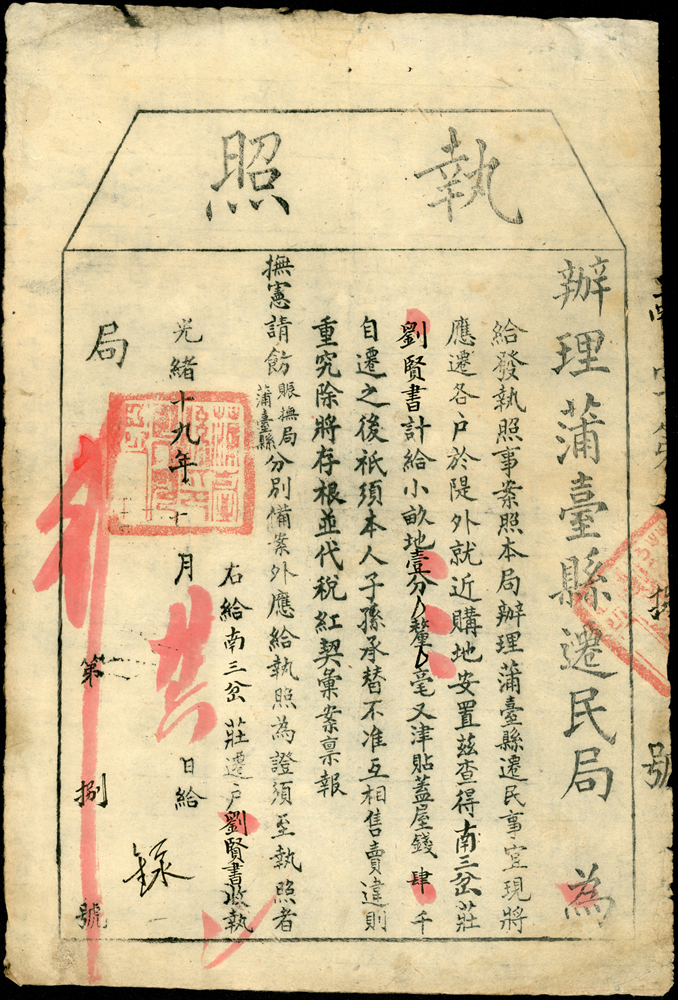 執照
辦理蒲臺縣遷民局 為
給發執照事案照本局辦理蒲臺縣遷民事宜現將
應遷各戶於隄外就近購地安置茲查得南三岔莊
劉賢書計給小畝地壹分 釐 毫又津貼蓋屋錢肆千
自遷之後祇須本人子孫承替不准互相售賣違則
重究除將存根並代稅紅契彙案稟報
撫憲請飭賑撫局蒲臺縣分別備案外應給執照為證須至執照者
右給南三岔莊遷戶劉賢書收執
光緒十九年十 月 日給
局 第 捌 號
捌 號